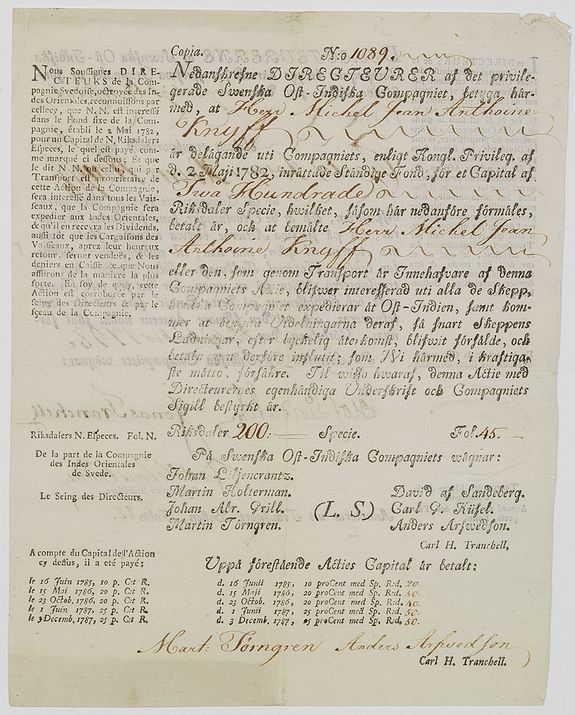 Copia. N:o 1089.
Nous Soussignés DIRE-
CTEURS de la Com-
pagnie Svedoise, octroyée des In-
des Orientales, reconnoissons par
cellecy, que N. N. est interessé
dans le Fond fixe de la Com-
pagnie, établi le 2 Mai 1782,
pour un Capital de N. Riksdalers
Especes, le quel est payé, com-
me marqué ci dessous; Et que
le dit N. N. ou celui, qui par
Transport est proprietaire de
cette Action de la Compagnie,
sera interessé dans tous les Vais-
seaux, que la Compagnie fera
expedier aux Indes Orientales,
& qu'il en recevra les Dividends,
aussi tôt que les Cargaisons des
Vaisseaux, aprez leur heureux
retour, seront vendües, & les
deniers en Caisse & que Nous
assurons de la maniere la plus
forte. En foy de quoy, cette
Action est corroborée par le
seing des Directeurs & par le
sçeau de la Compagnie.
Nedanskrefne DIRECTEURER af det privile-
gerade Swenska Ost-Indiska Compagniet, betyga här-
med, at Herr Michel Jean Anthoine
Knyff
är delägande uti Compagniets, enligt Kongl. Privileg. af
d. 2 Maji 1782, inrättade Ständige Fond, för et Capital af
Twå Hundrade
Riksdaler Specie, hwilket, såsom här nedanföre förmäles,
betalt är, och at bemälte Herr Michel Jean
Anthoine Knyff
eller den, som genom Transport är Innehafvare af denna
Compagniets Actie, blifwer interesserad uti alla de Skepp,
Compagniet expedierar åt Ost-Indien, samt kom-
mer at benjuta Utdelningarna deraf, så snart Skeppens
Ladningar, efter lyckelig återkomst, blifwit försålde, och
betalningen derföre influtit; som Wi härmed, i kraftiga-
ste måtto, försäkre. Til wisso hwaraf, denna Actie med
Directeurernes egenhändiga Underskrift och Compagniets
Sigill bestyrkt är.
Riksdalers N. Especes. Fol. N.
Riksdaler 200:— Specie. Fol. 45
De la part de la Compagnie
des Indes Orientales
de Svede.
Le Seing des Directeurs.
På Swenska Ost-Indiska Compagniets wägnar:
Johan Liljencrantz.
Martin Holterman. David af Sandeberg.
Johan Abr. Grill. (L. S.) Carl G. Küsel.
Martin Törngren. Anders Arfwedson.
Carl H. Tranchell,
A compte du Capital de l'Action
cy dessus, il a eté payé:
le 16 Juin 1785, 10 p. Cet R.
le 15 Mai 1786, 20 p. Cet R.
le 23 Octob. 1786, 20 p. Cet R.
le 1 Juin 1787, 25 p. Cet R.
le 3 Decemb. 1787, 25 p. Cet R.
Uppå förestående Acties Capital är betalt:
d. 16 Junii 1785, 10 proCent med Sp. R:d. 20.
d. 15 Maji 1786, 20 proCent med Sp. R:d. 40.
d. 23 Octob. 1786, 20 proCent med Sp. R:d. 40.
d. 1 Junii 1787, 25 proCent med Sp. R:d. 50.
d. 3 Decemb. 1787, 25 proCent med Sp. R:d. 50.
Mart: Törngren Anders Arfvedson
Carl H. Tranchell.